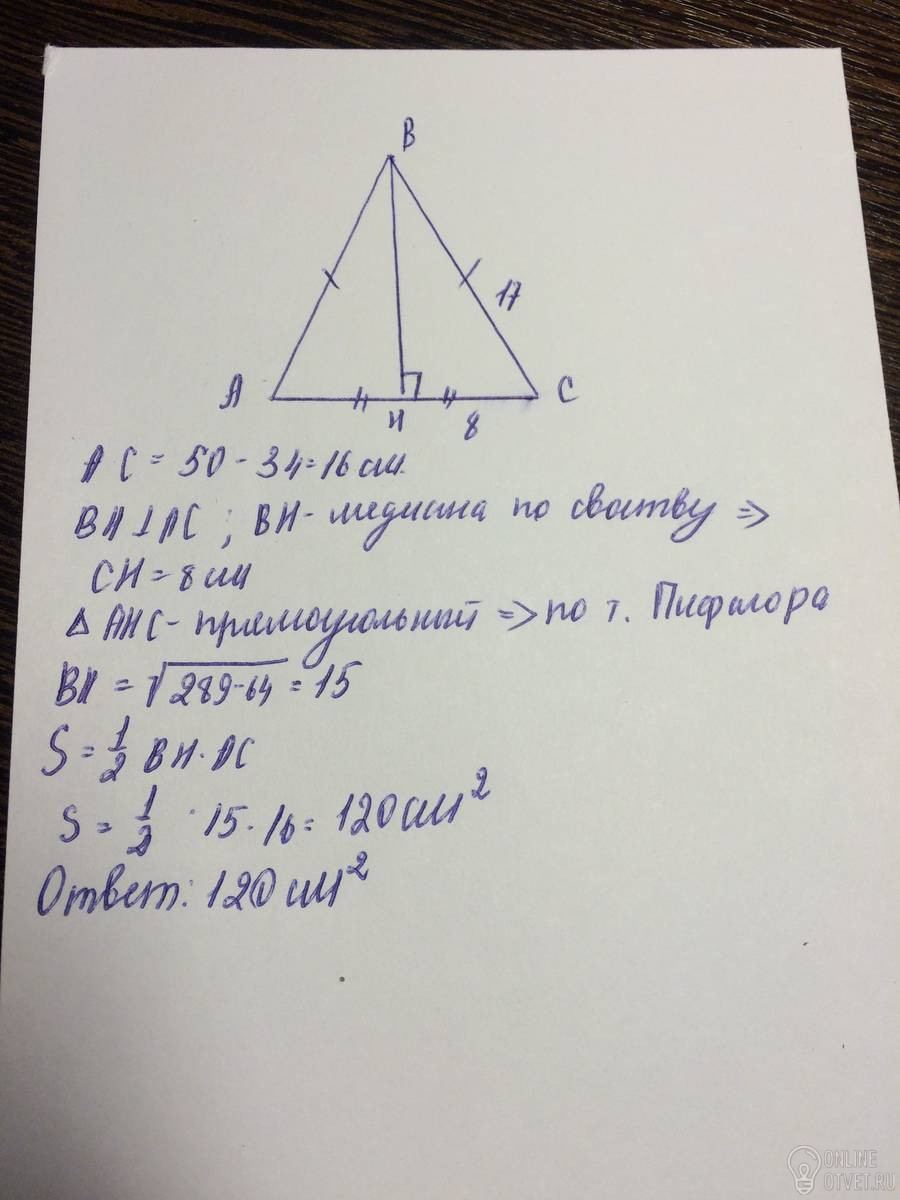 B
17
A
H
8
C
AC = 50 - 34 = 16 см.
BH ⊥ AC ; BH - медиана по своству ⇒
CH = 8 см
△ AHC - прямоугольный ⇒ по т. Пифагора
BH = √289-64 = 15
S = 1/2 BH · AC
S = 1/2 · 15 · 16 = 120 см²
Ответ: 120 см²
ONLINE
OTVET.RU